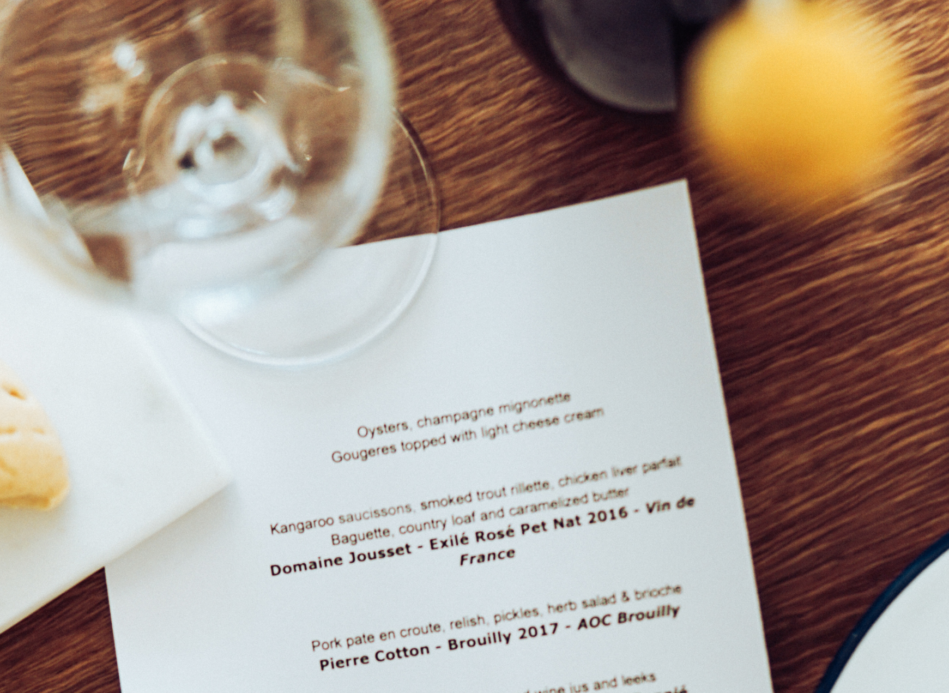 Oysters, champagne mignonette
Gougeres topped with light cheese cream
Kangaroo saucissons, smoked trout rillette, chicken liver parfait
Baguette, country loaf and caramelized butter
Domaine Jousset - Exilé Rosé Pet Nat 2016 - Vin de
France
Pork pate en croute, relish, pickles, herb salad & brioche
Pierre Cotton - Brouilly 2017 - AOC Brouilly
wine jus and leeks